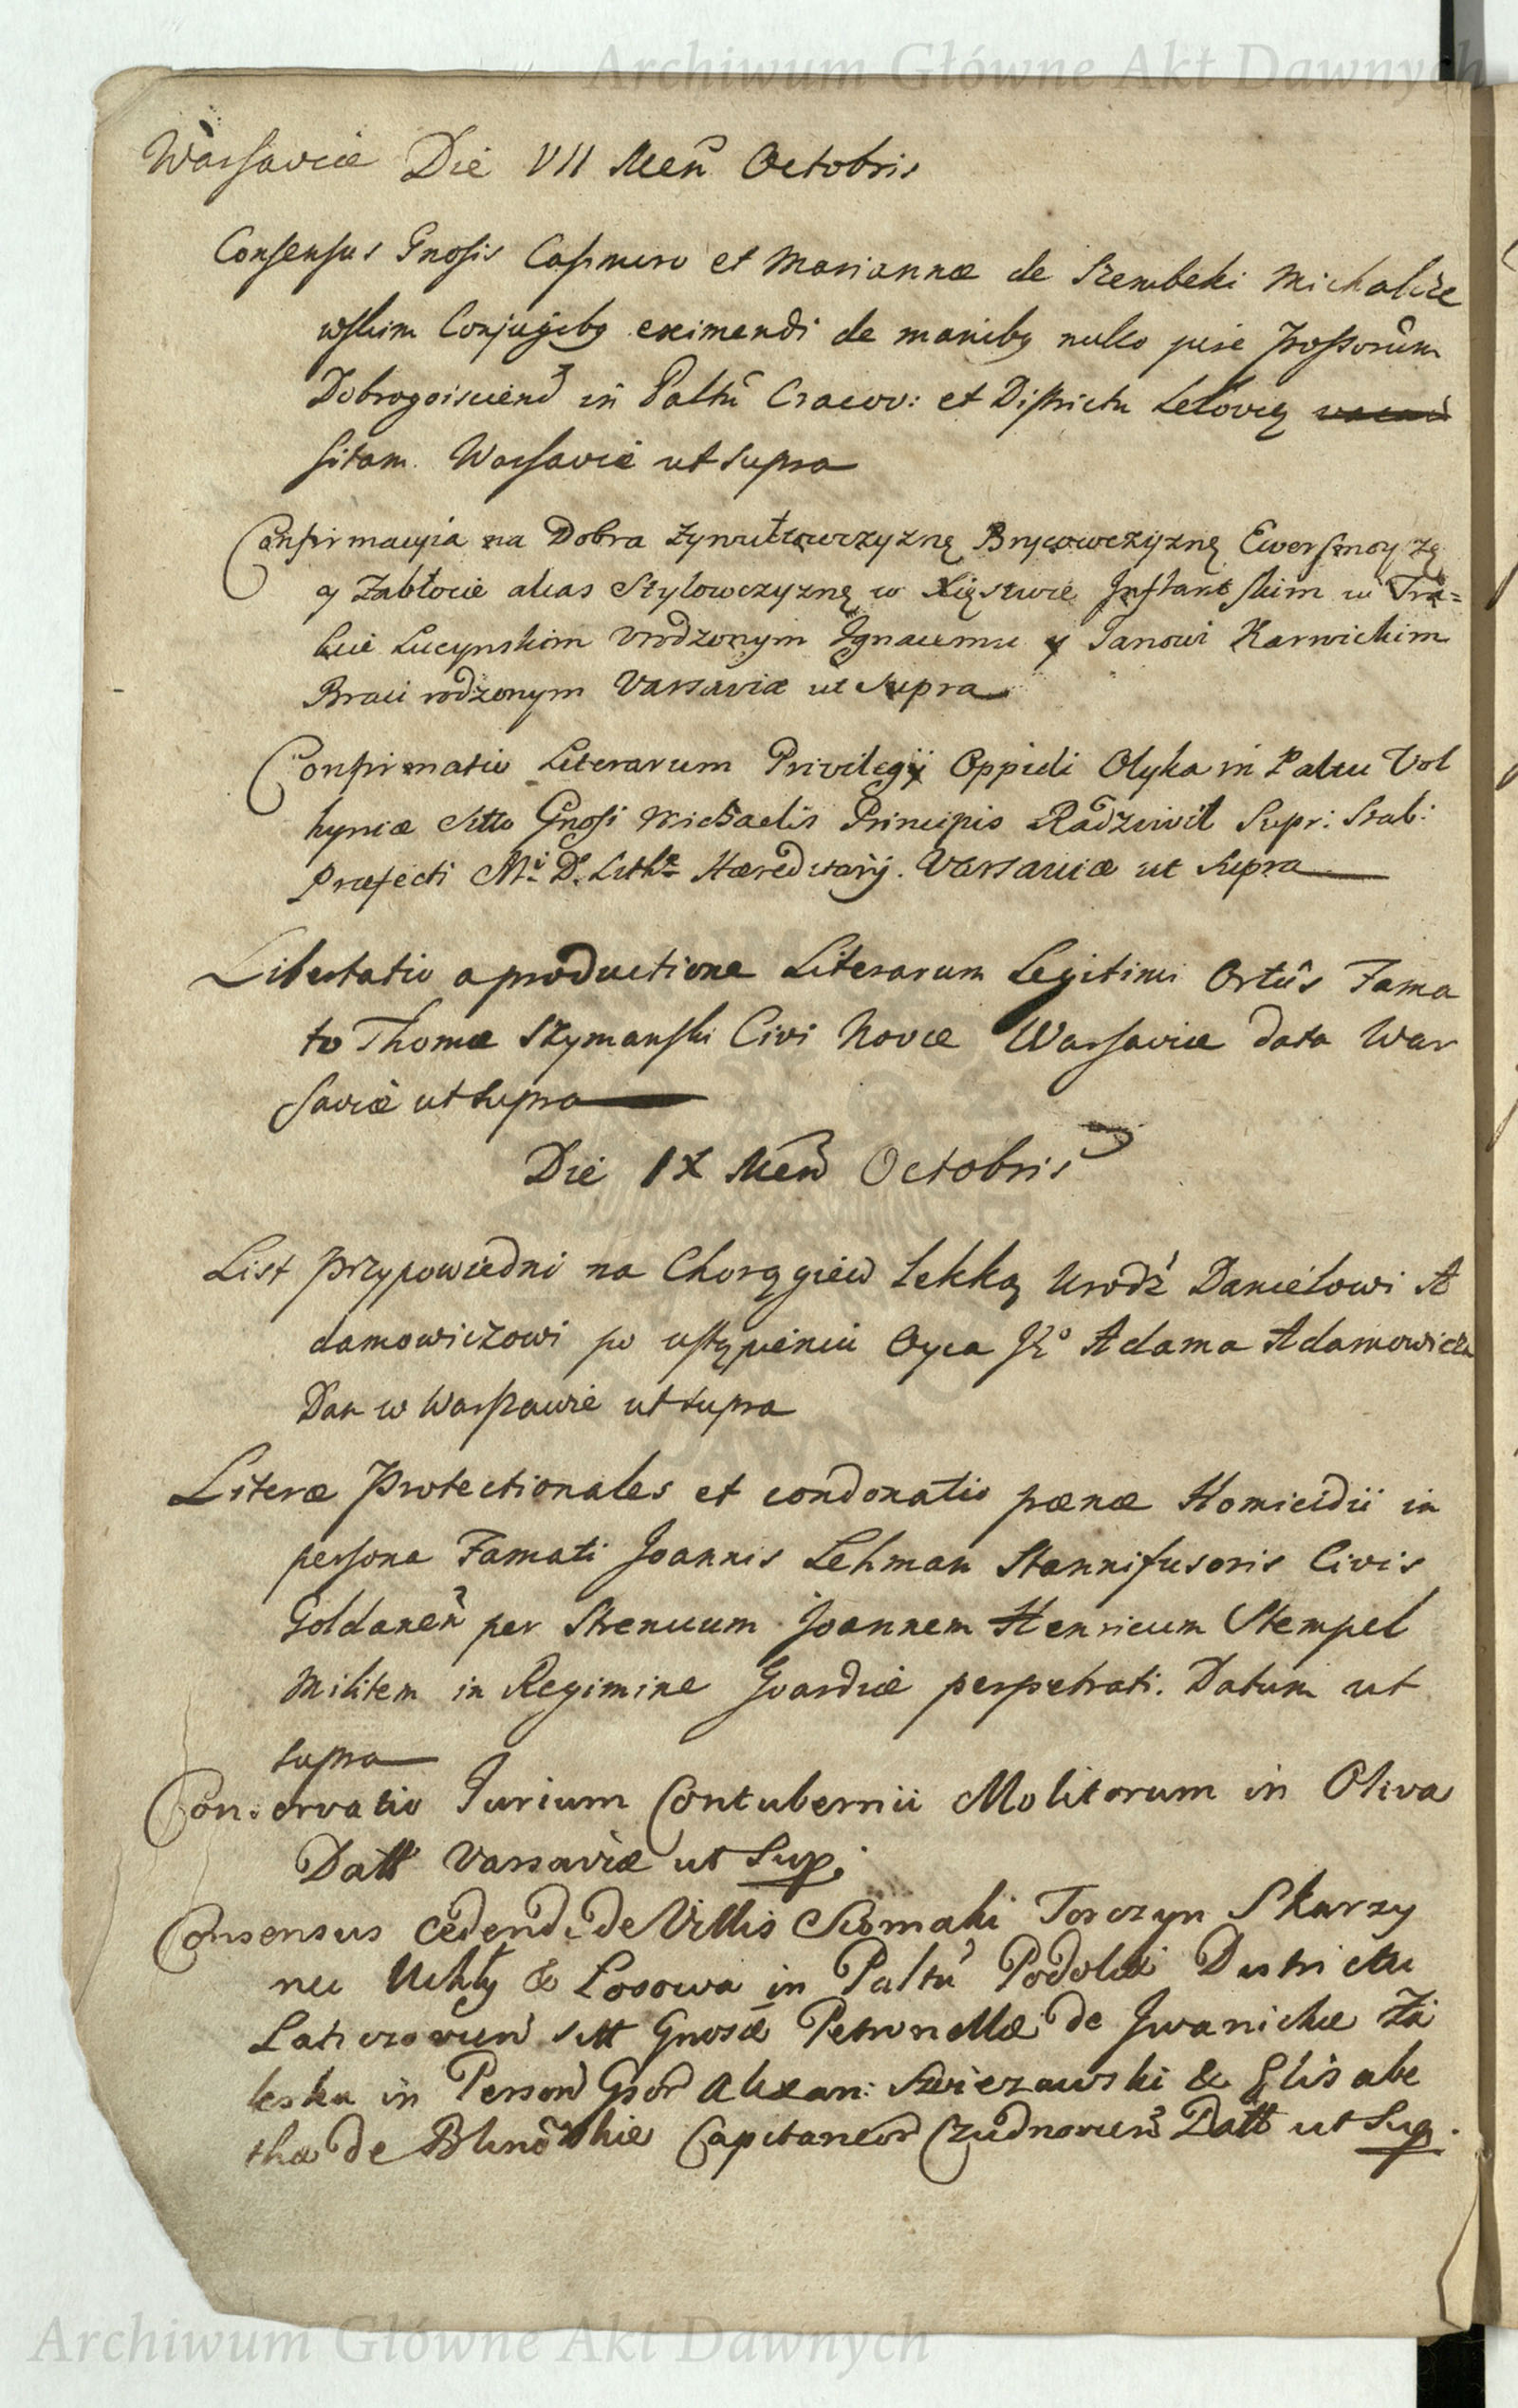 Archiwum Główne Akt Dawnych
Warsaviæ Die VII Men̄ Octobris
Consensus Gnosis Casimiro et Mariannæ de Szembeki Michalcze
wskim Conjugibꝫ eximendi de manibꝫ nullo jure Possorum
Dobrogoiscien̄ in Paltũ Cracov: et Districtu Leloviẽ
sitam. Warsaviæ ut supra
Confirmacyia na Dobra Zynultowczyznę Brycowczyznę Ewersmoyzę
y Zabłocie alias Stylowczyznę w Xięstwie Inflantskim w Tra=
kcie Lucynskim Vrodzonym Ignacemu y Janowi Karwickim
Braci rodzonym Varsaviæ ut supra
Confirmatio Literarum Privilegij Oppidi Olyka in Paltu Vol
hyniæ Sitto Gnosi Michaelis Principis Radziwil Supr: Stab:
Præfecti M.i D. Lith.æ Hæreditarij. Varsaviæ ut Supra
Libertatio a productione Literarum Legitimi Ortûs Fama
to Thomæ Szymanski Civi Novæ Warsaviæ data War
saviæ ut supra
Die IX Men̄ Octobris
List przypowiedni na Chorągiew Lekką Urodz̃ Danielowi A
damowiczowi po ustąpieniu Oyca Je͠o Adama Adamowicza
Dan w Warszawie ut supra
Literæ Protectionales et condonatio pænæ Homicidii in
persona Famati Joannis Lehman Stannifusoris Civis
Goldanen̄ per Strenuum Joannem Henricum Stempel
Militem in Regimine Gvardiæ perpetrati. Datum ut
supra
Conservatio Jurium Contubernii Molitorum in Oliva
Datt Varsaviæ ut Sup:
Consensus cedendi de Villis Skomaki Torczyn Skarzy
nci & Losowa in Paltũ Podoliæ Districtu
Laticzovien̄ sitt Gnosæ Petronellæ de Jwanickie Za
leska in Person̄ Gsor̄ Alexan: Swiezawski & Elisabe
tha de Capitaneor̄ Czudnovien̄ Datt ut Sup.
Archiwum Główne Akt Dawnych